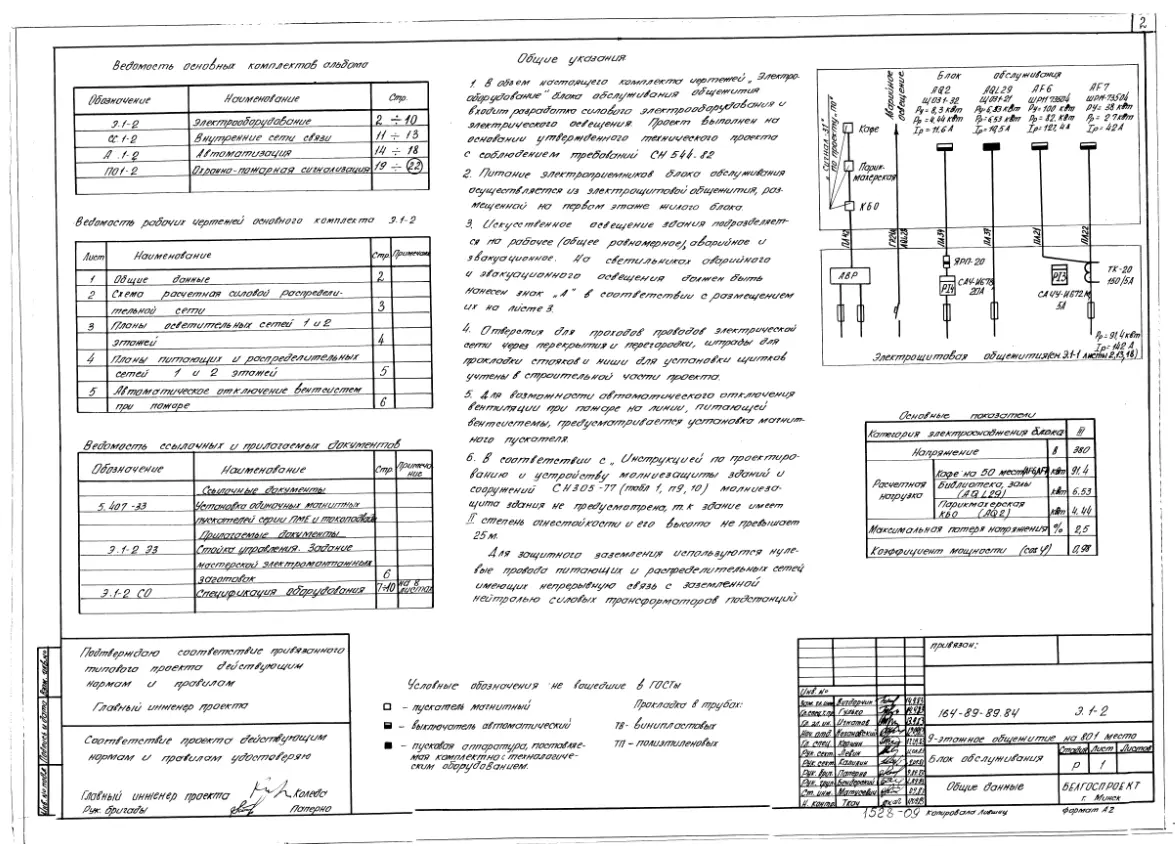 2
Ведомость основных комплектов альбома
Обозначение Наименование Стр.
Э.1-2 Электрооборудование 2 ÷ 10
СС 1-2 Внутренние сети связи 11 ÷ 13
А .1-2 Автоматизация 14 ÷ 18
ПО1-2 Охранно-пожарная сигнализация 19 ÷ 22
Ведомость рабочих чертежей основного комплекта Э.1-2
Лист Наименование Стр. Примечан.
1 Общие данные 2
2 Схема расчетная силовой распредели-
тельной сети 3
3 Планы осветительных сетей 1 и 2
этажей 4
4 Планы питающих и распределительных
сетей 1 и 2 этажей 5
5 Автоматическое отключение вентсистем
при пожаре 6
Ведомость ссылочных и прилагаемых документов
Обозначение Наименование Стр. Примеча-
ние
Ссылочные документы
5.407-33 Установка одиночных магнитных
пускателей серии ПМЕ и
Прилагаемые документы
Э.1-2 ЭЗ Стойка управления. Задание
мастерской электромонтажных
заготовок 6
Э.1-2 СО Спецификация оборудования 7÷10 на 8
листах
Общие указания
1. В объем настоящего комплекта чертежей „Электро-
оборудование" блока обслуживания общежития
входит разработка силового электрооборудования и
электрического освещения Проект выполнен на
основании утвержденного технического проекта
с соблюдением требований СН 544-82
2. Питание электроприемников блока обслуживания
осуществляется из электрощитовой общежития, раз-
мещенной на первом этаже жилого блока.
3. Искусственное освещение здания подразделяет-
ся на рабочее (общее равномерное), аварийное и
эвакуационное. На светильниках аварийного
и эвакуационного освещения должен быть
нанесен знак „А" в соответствии с размещением
их на листе 3.
4. Отверстия для проходов проводов электрической
сети через перекрытия и перегородки, штрабы для
прокладки стояков и ниши для установки щитков
учтены в строительной части проекта.
5. Для возможности автоматического отключения
вентиляции при пожаре на линии, питающей
вентсистемы, предусматривается установка магнит-
ного пускателя.
6. В соответствии с „Инструкцией по проектиро-
ванию и устройству молниезащиты зданий и
сооружений СН305-77 (табл 1, п9, 10) молниеза-
щита здания не предусмотрена, т.к здание имеет
II степень огнестойкости и его высота не превышает
25м.
Для защитного заземления используются нуле-
вые провода питающих и распределительных сетей
имеющих непрерывную связь с заземленной
нейтралью силовых трансформаторов подстанций
Блок обслуживания
AQ2 AQL29 AF6 AF7
ЩО31-32 ЩО31-21 ШР11-73504 ШР11-73504
Ру= 8,3 кВт Ру=6.83 кВт Ру=100 кВт Ру= 38 кВт
Рр = 4,44 кВт Рр=6.53 кВт Рр = 82. кВт Рр = 27 кВт
Iр= 11.6 А Iр= 10,5 А Iр= 127,4 А Iр= 42 А
„Сигнал-31"
по проекту „ПО"
Кафе
Парик-
махерская
КБО
Аварийное
освещение
ПЛ42
ПЛ39
ПЛ31
ПЛ21
ПЛ22
АВР
ЯРП-20
PI4
САЧ-И678
20А
PI3
САЧУ-И672М
5А
ТК-20
150/5А
Рр= 91,4 кВт
Iр= 142 А
Электрощитовая общежития (см Э.1-1 листы 2,13,18)
Основные показатели
Категория электроснабжения блока III
Напряжение В 380
Расчетная
нагрузка
Кафе на 50 мест (AF6,AF7) кВт 91.4
Библиотека, залы
(AQL29) кВт 6.53
Парикмахерская
КБО (AQ2) кВт 4.44
Максимальная потеря напряжения % 2,5
Коэффициент мощности (cos φ) 0,98
Подтверждаю соответствие привязанного
типового проекта действующим
нормам и правилам
Главный инженер проекта
Соответствие проекта действующим
нормам и правилам удостоверяю
Главный инженер проекта Коледа
Рук. бригады Паперно
Условные обозначения не вошедшие в ГОСТы
– пускатель магнитный
– выключатель автоматический
– пусковая аппаратура, поставляе-
мая комплектно с технологиче-
ским оборудованием.
Прокладка в трубах:
ТВ- винипластовых
ТП – полиэтиленовых
привязан:
Инв. №
Гл.спец.т.пр. Гулько
Гл. эл. ин. Игнатов
Гл. спец. Каршин
Рук. сект. Левин
Рук. сект. Калинин
Рук. бриг. Паперно
Рук. груп. Бендерский
Ст. инж. Матусевич
Н. контр. Ткач
164-89-89.84 Э.1-2
9-этажное общежитие на 801 место
Блок обслуживания
Стадия Лист Листов
Р 1
Общие данные
БЕЛГОСПРОЕКТ
г. Минск
1528-09 Копировала формат А2
Инв.№ подл. Подпись и дата Взам. инв.№